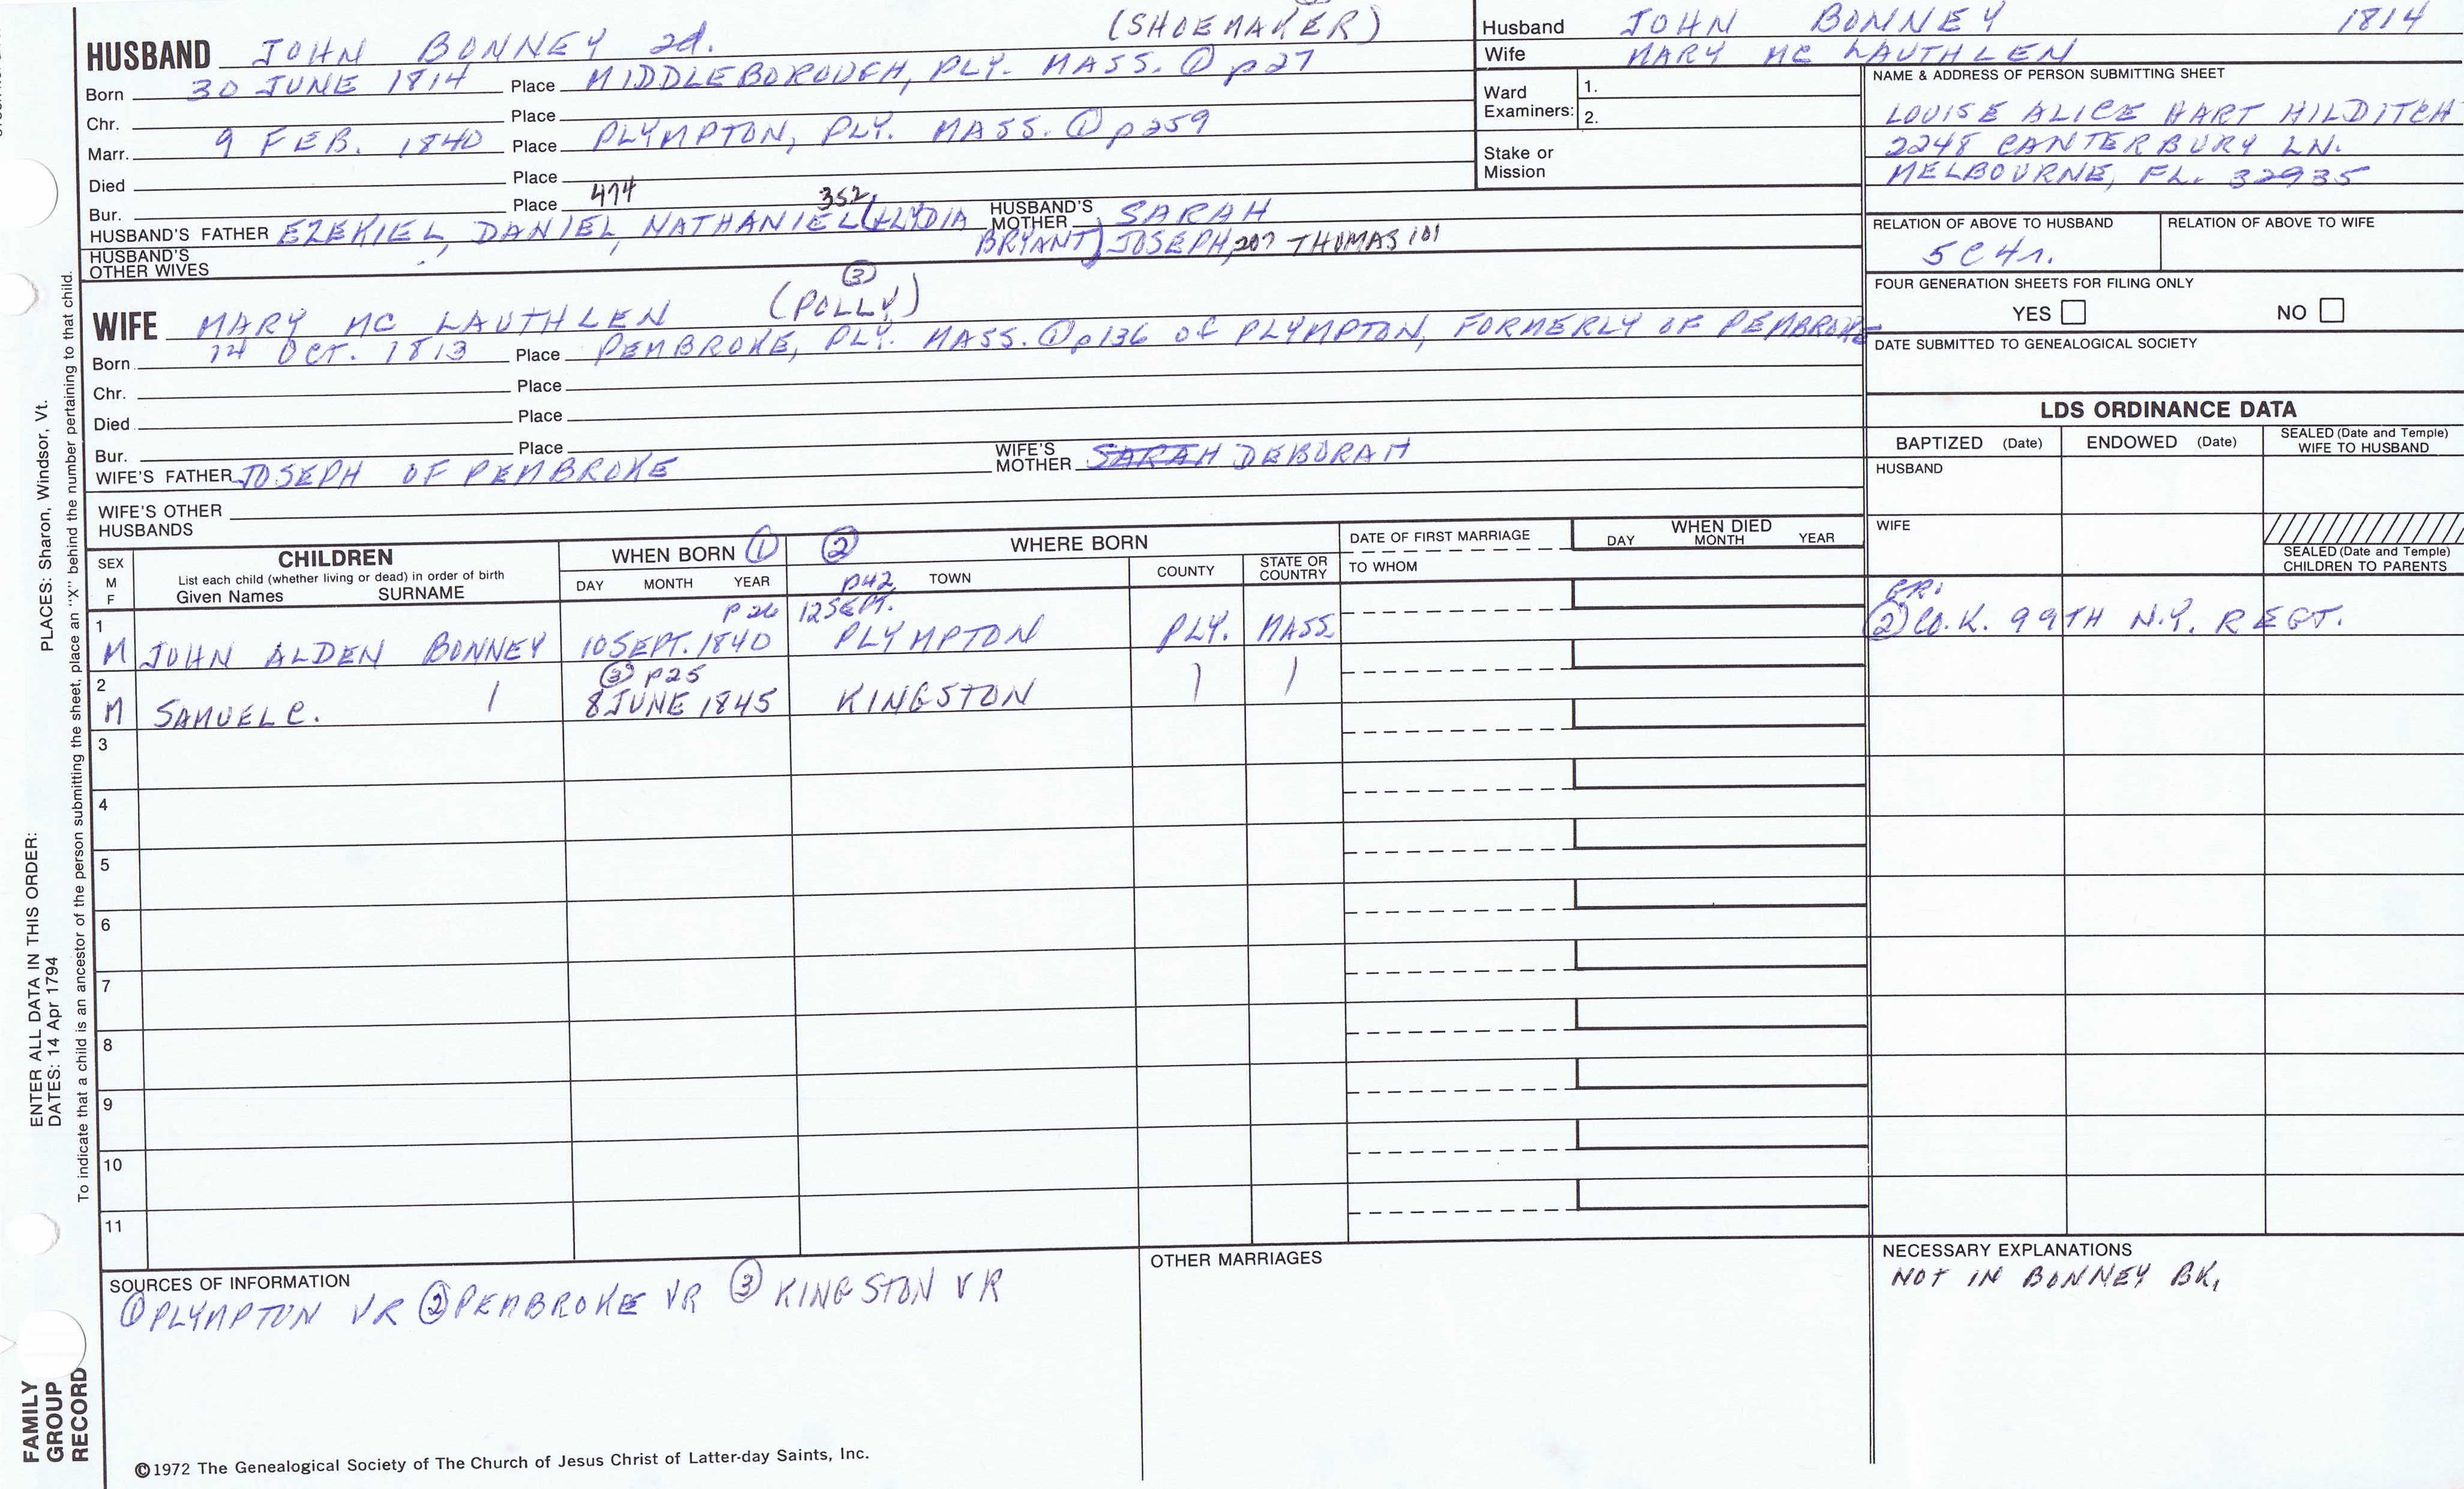 HUSBAND JOHN BONNEY 2d. (SHOEMAKER)
Born 30 JUNE 1814 Place MIDDLEBOROUGH, PLY. MASS. ① p27
Chr. Place
Marr. 9 FEB. 1840 Place PLYMPTON, PLY. MASS. ① p259
Died Place
Bur. Place 474 352
HUSBAND'S FATHER EZEKIEL, DANIEL, NATHANIEL (+LYDIA HUSBAND'S MOTHER SARAH
BRYANT) JOSEPH, 207 THOMAS 101
HUSBAND'S OTHER WIVES
③
WIFE MARY MC LAUTHLEN (POLLY)
Born 14 OCT. 1813 Place PEMBROKE, PLY. MASS. ① p136 of PLYMPTON, FORMERLY OF PEMBROKE
Chr. Place
Died Place
Bur. Place
WIFE'S FATHER JOSEPH OF PEMBROKE WIFE'S MOTHER SARAH DEBORAH
WIFE'S OTHER HUSBANDS
Husband JOHN BONNEY 1814
Wife MARY MC LAUTHLEN
Ward Examiners: 1.
2.
Stake or Mission
NAME & ADDRESS OF PERSON SUBMITTING SHEET
LOUISE ALICE HART HILDITCH
2248 CANTERBURY LN.
MELBOURNE, FL. 32935
RELATION OF ABOVE TO HUSBAND RELATION OF ABOVE TO WIFE
5C4r.
FOUR GENERATION SHEETS FOR FILING ONLY
YES NO
DATE SUBMITTED TO GENEALOGICAL SOCIETY
LDS ORDINANCE DATA
BAPTIZED (Date) ENDOWED (Date) SEALED (Date and Temple) WIFE TO HUSBAND
HUSBAND
WIFE
SEALED (Date and Temple) CHILDREN TO PARENTS
SEX M F
CHILDREN
List each child (whether living or dead) in order of birth
Given Names SURNAME
WHEN BORN ①
DAY MONTH YEAR
② WHERE BORN
p42 TOWN COUNTY STATE OR COUNTRY
DATE OF FIRST MARRIAGE
TO WHOM
WHEN DIED
DAY MONTH YEAR
p26 12 SEPT. GR:
1 M JOHN ALDEN BONNEY 10 SEPT. 1840 PLYMPTON PLY. MASS. ② CO. K. 99TH N.Y. REGT.
③ p25
2 M SAMUEL C. 8 JUNE 1845 KINGSTON
3
4
5
6
7
8
9
10
11
SOURCES OF INFORMATION
① PLYMPTON VR ② PEMBROKE VR ③ KINGSTON VR
OTHER MARRIAGES
NECESSARY EXPLANATIONS
NOT IN BONNEY BK.
©1972 The Genealogical Society of The Church of Jesus Christ of Latter-day Saints, Inc.
FAMILY GROUP RECORD
ENTER ALL DATA IN THIS ORDER:
DATES: 14 Apr 1794
PLACES: Sharon, Windsor, Vt.
To indicate that a child is an ancestor of the person submitting the sheet, place an "X" behind the number pertaining to that child.